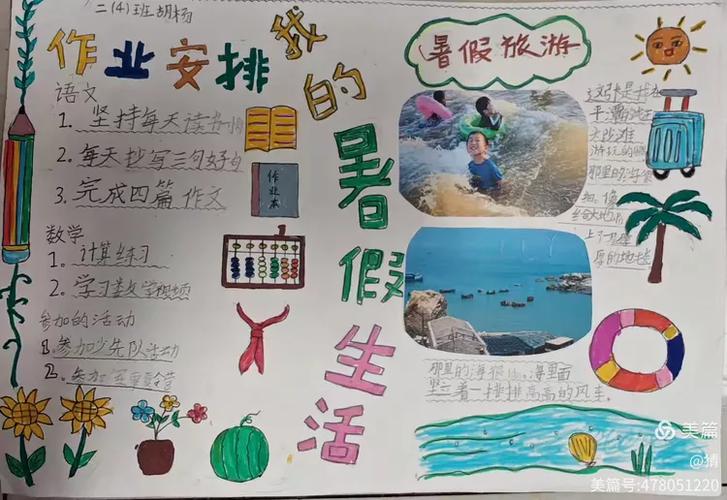 二(4)班胡杨
作业安排
语文
1. 坚持每天读书
2. 每天抄写三句好句
3. 完成四篇作文
作业本
数学
1. 计算练习
2. 学习数学视频
参加的活动
1. 参加少先队活动
2. 参加夏令营
我的暑假生活
暑假旅游
这张是我在
平潭
大沙滩
游玩的
那里的
细，像
给大地
上了一层
厚的地毯
那里的海很
海里面
竖着一排排高高的风车。
美篇
@猜
美篇号:478051220